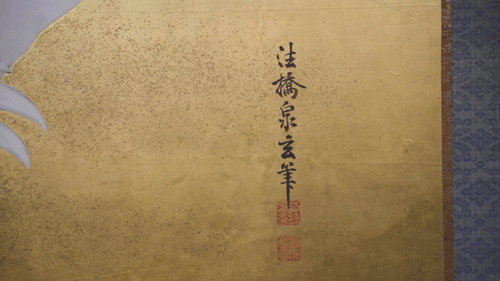 法橋泉玄筆